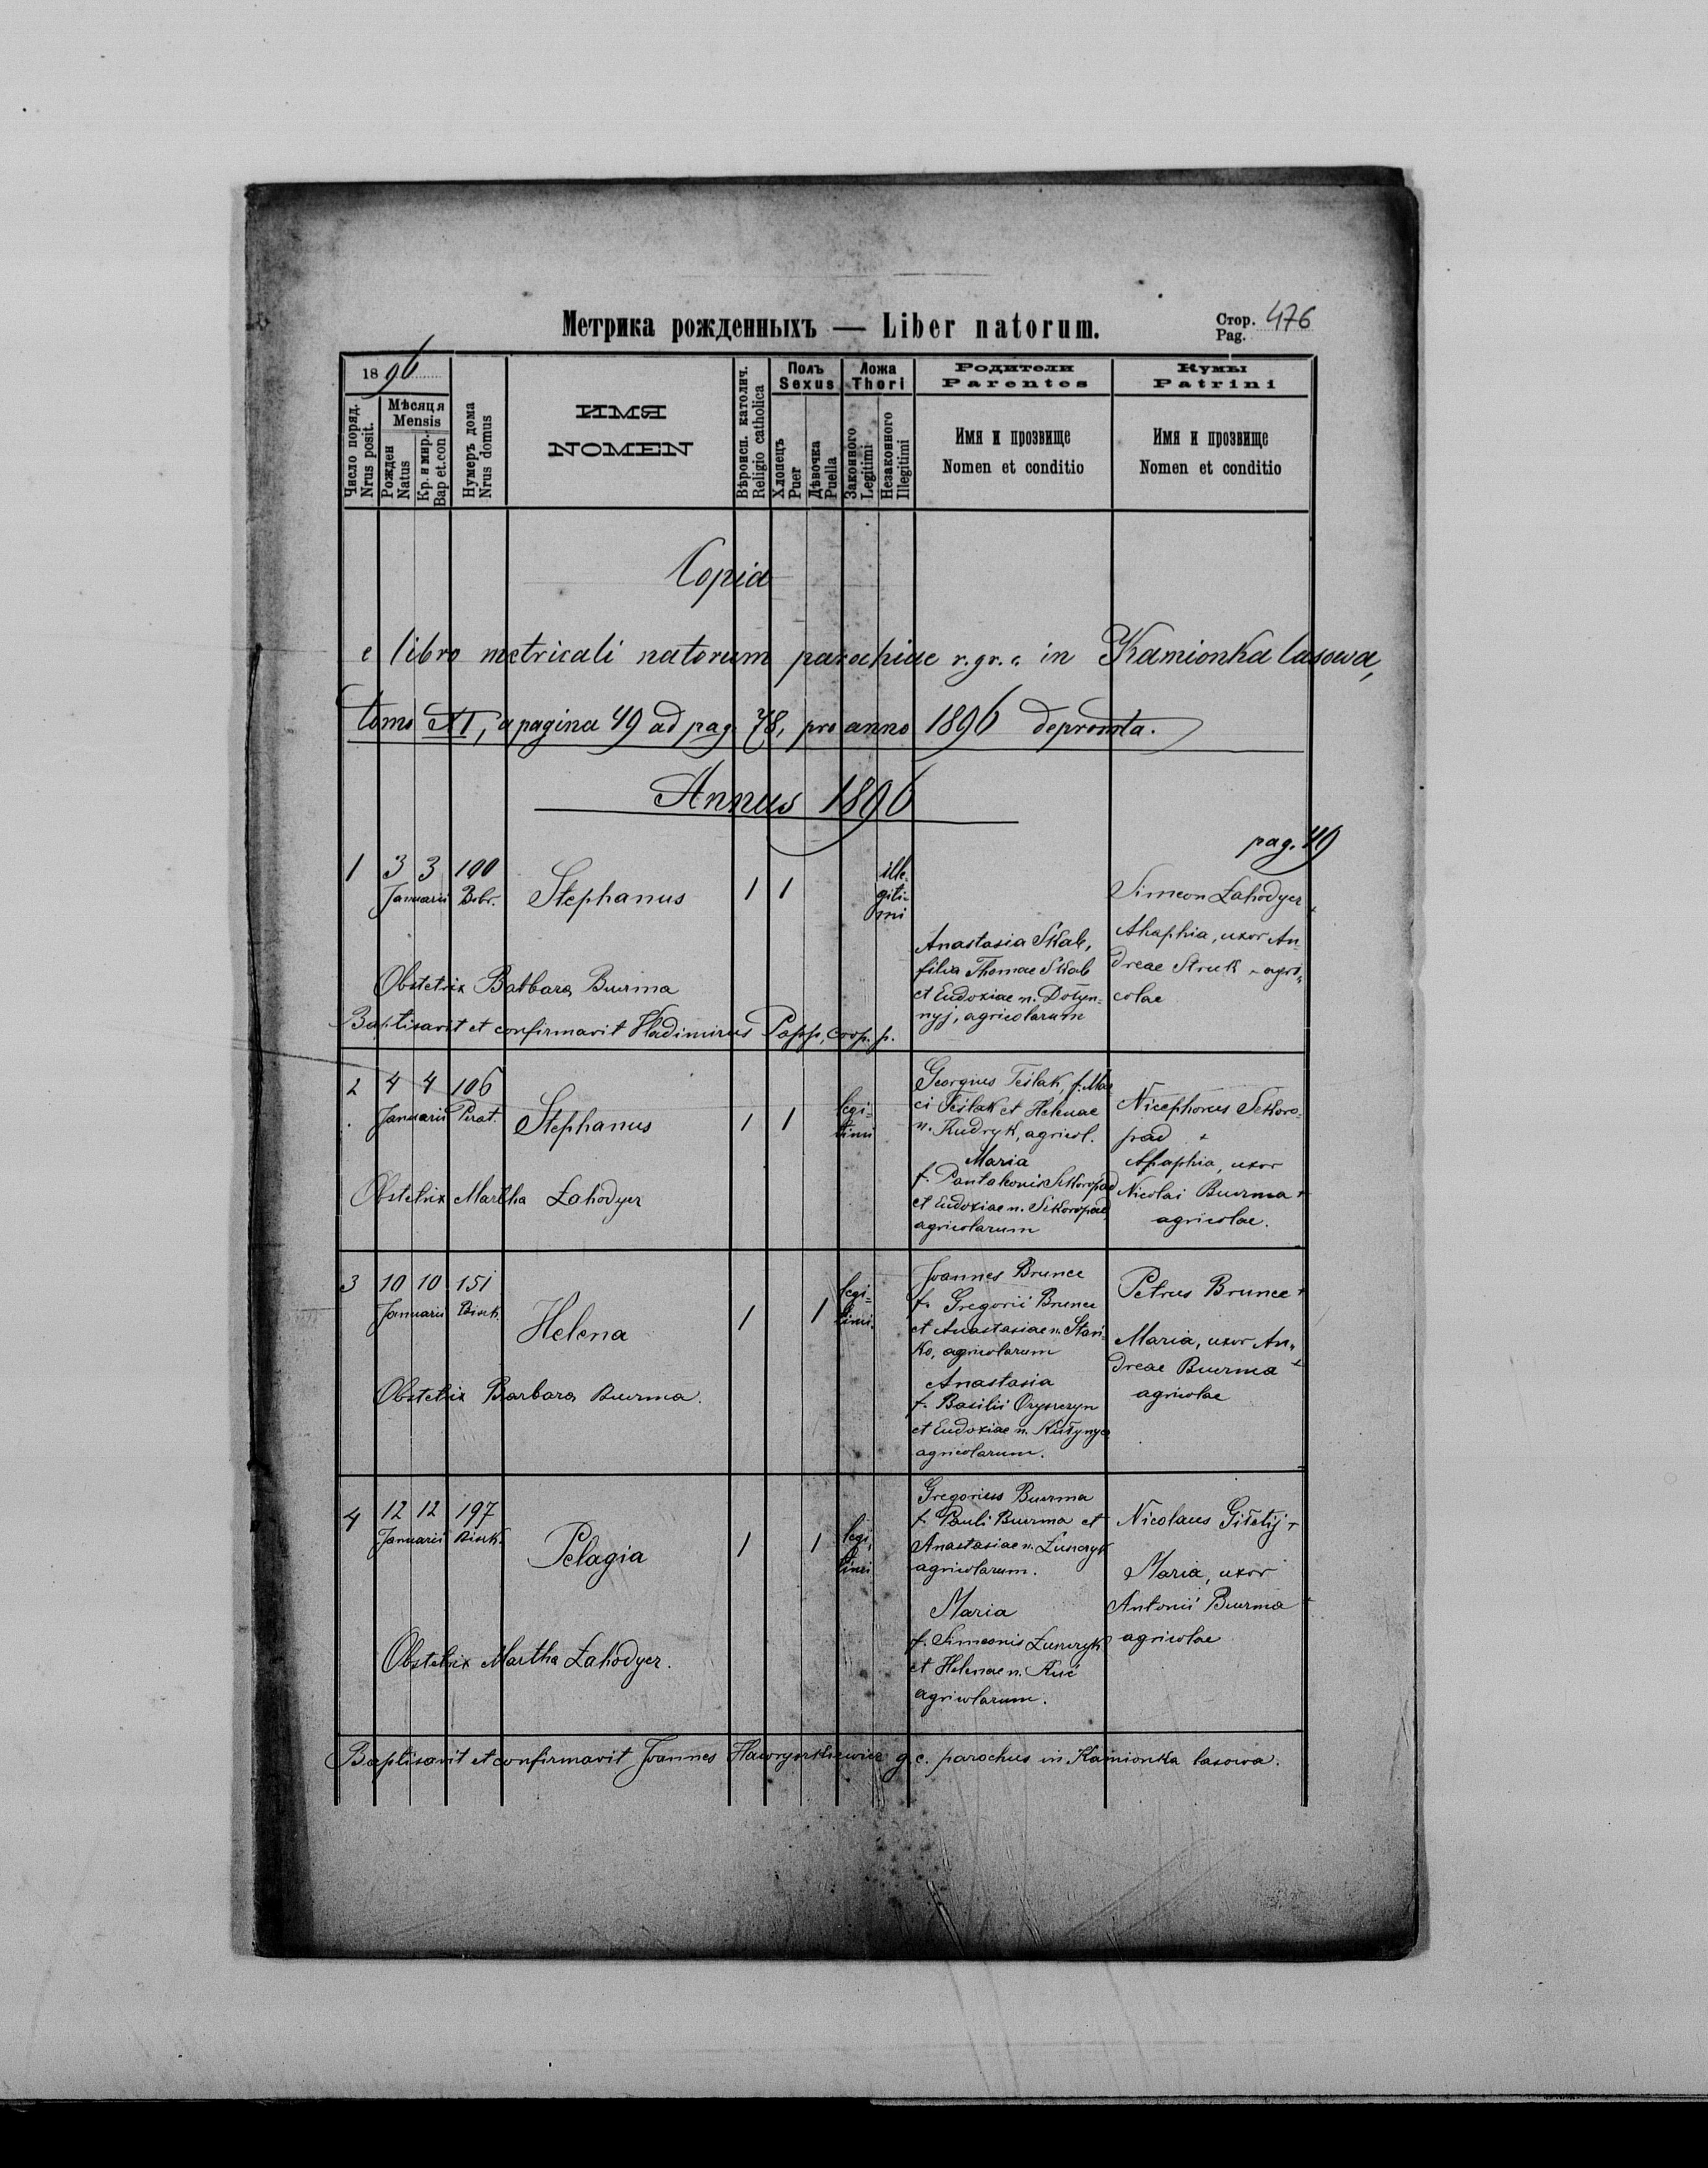 Метрика рожденныхъ — Liber natorum.
Стор. 476
Pag.
1896
Число поряд.
Nrus posit.
Мѣсяця
Mensis
Рожден
Natus
Кр. и мир.
Bap et.con
Нумеръ дома
Nrus domus
ИМЯ
NOMEN
Вѣроисп. католич.
Religio catholica
Полъ
Sexus
Хлопецъ
Puer
Дѣвочка
Puella
Ложа
Thori
Законного
Legitimi
Незаконного
Illegitimi
Родители
Parentes
Имя и прозвище
Nomen et conditio
Кумы
Patrini
Имя и прозвище
Nomen et conditio
Copia
e libro metricali natorum parochiae r. gr. c. in Kamionka lasowa,
tomo XI, a pagina 49 ad pag. 78, pro anno 1896 depromta.
Annus 1896
pag. 49
1 3 3 100
Januarii Bobr.
Stephanus
1 1
ille-
giti-
mi
Anastasia Skab,
filia Thomae Skab
et Eudoxiae n. Dołyn=
nyj, agricolarum
Simeon Łahodyer +
Ahaphia, uxor An-
dreae Struk - agri-
colae
Obstetrix Barbara Burma
Baptisavit et confirmavit Vladimirus Popp, coop. p.
2 4 4 106
Januarii Pirat.
Stephanus
1 1
legi=
timi
Georgius Teślak, f. Ma
ci Teślak et Helenae
n. Kudryk, agricol.
Maria
f. Pantaleonis Sckoropad
et Eudoxiae n. Sckoropad,
agricolarum
Nicephorus Sckoro=
pad +
Ahaphia, uxor
Nicolai Burma +
agricolae.
Obstetrix Martha Łahodyer
3 10 10 151
Januarii Bisk.
Helena
1 1
legi=
timi.
Joannes Brunce
f. Gregorii Brunce
et Anastasiae n. Stari-
ko, agricolarum
Anastasia
f. Basilii
et Eudoxiae n.
agricolarum.
Petrus Brunce +
Maria, uxor An-
dreae Burma +
agricolae
Obstetrix Barbara Burma.
4 12 12 197
Januarii Bisk.
Pelagia
1 1
legi
timi
Gregorius Burma
f. Pauli Burma et
Anastasiae n. Łuszczyk
agricolarum.
Maria
f. Simeonis Łuszczyk
et Helenae n. Kuć
agricolarum.
Nicolaus Giłetij +
Maria, uxor
Antonii Burma +
agricolae
Obstetrix Martha Łahodyer.
Baptisavit et confirmavit Joannes g. c. parochus in Kamionka lasowa.